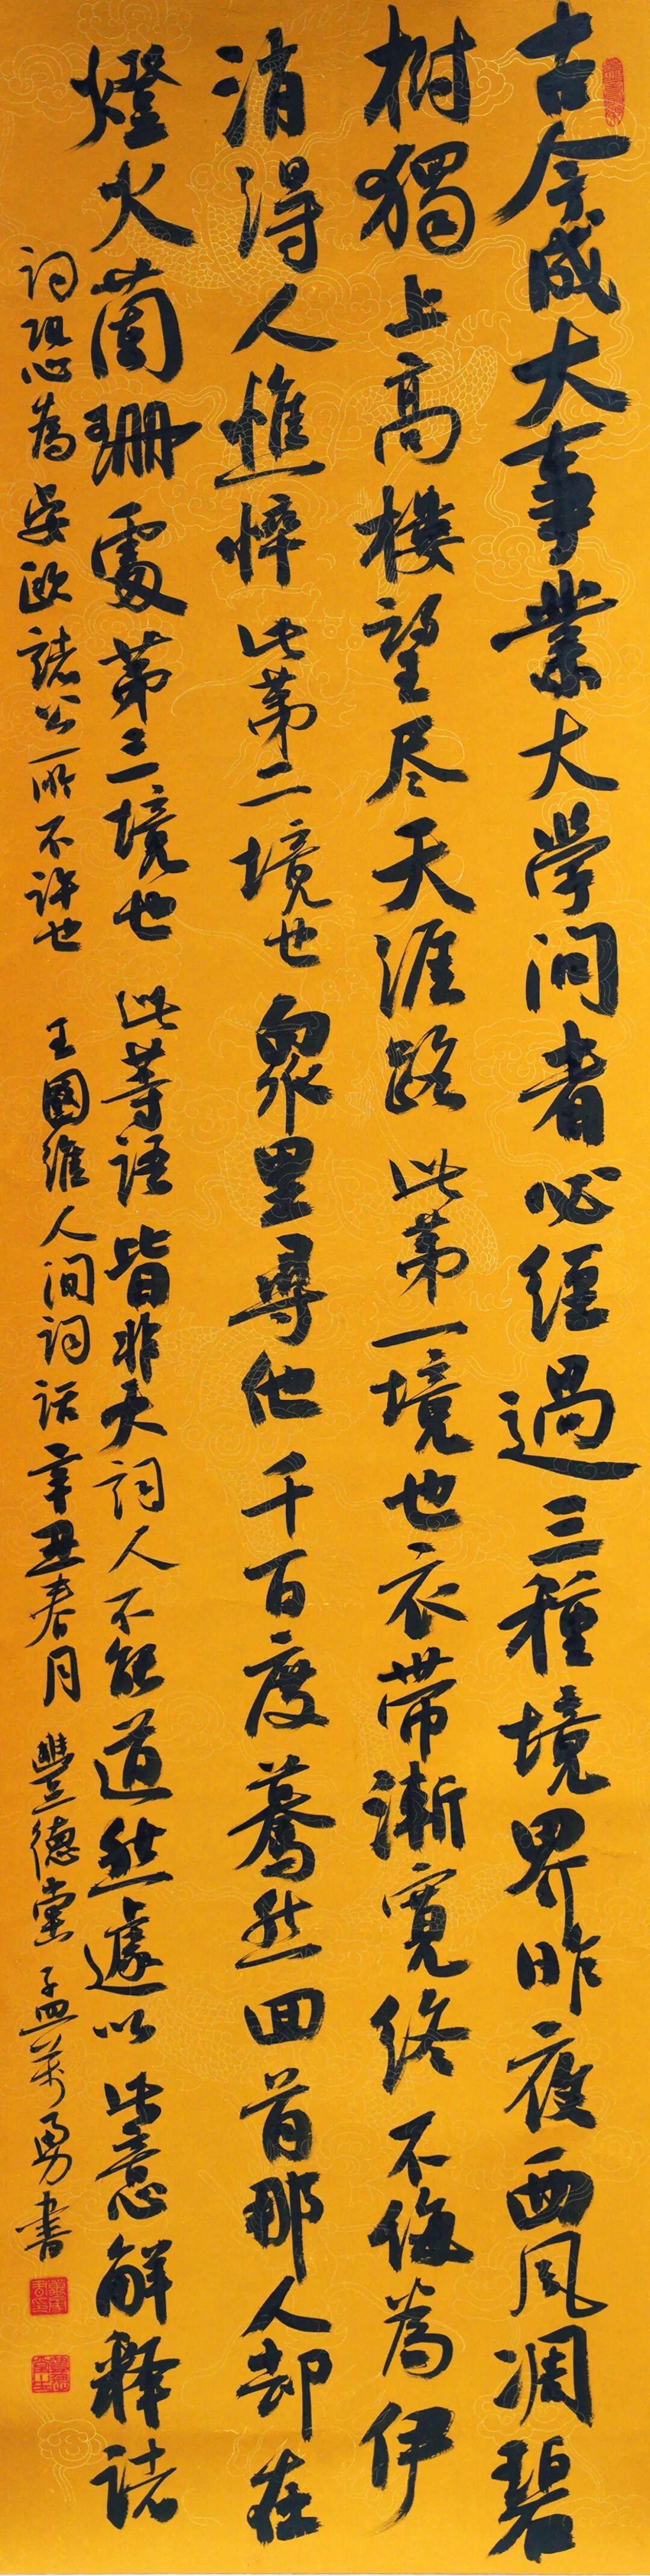 古今成大事業大學問者必經過三種境界昨夜西風凋碧
樹獨上高樓望尽天涯路此第一境也衣帶漸寬終不悔為伊
消得人憔悴此第二境也眾里尋他千百度驀然回首那人却在
燈火蘭珊處第三境也此等語皆非大詞人不能道然遽以此意解釋諸
詞恐為晏歐諸公所不許也 王國維人間詞話辛丑春月 豐德堂孟萬勇書